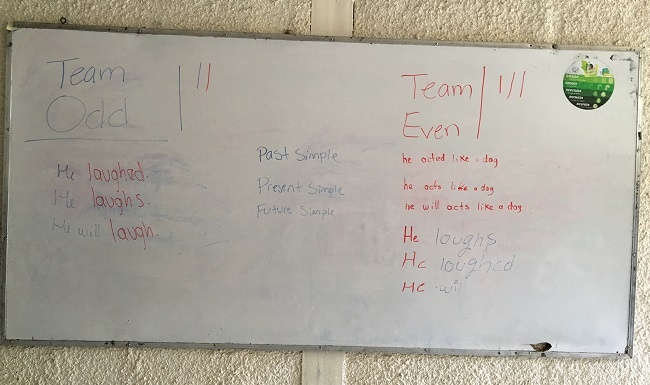 Team
Odd
He laughed.
He laughs.
He will laugh.
Past Simple
Present Simple
Future Simple
Team
Even
he acted like a dog
he acts like a dog
he will acts like a dog
He laughs
He loughed
He will